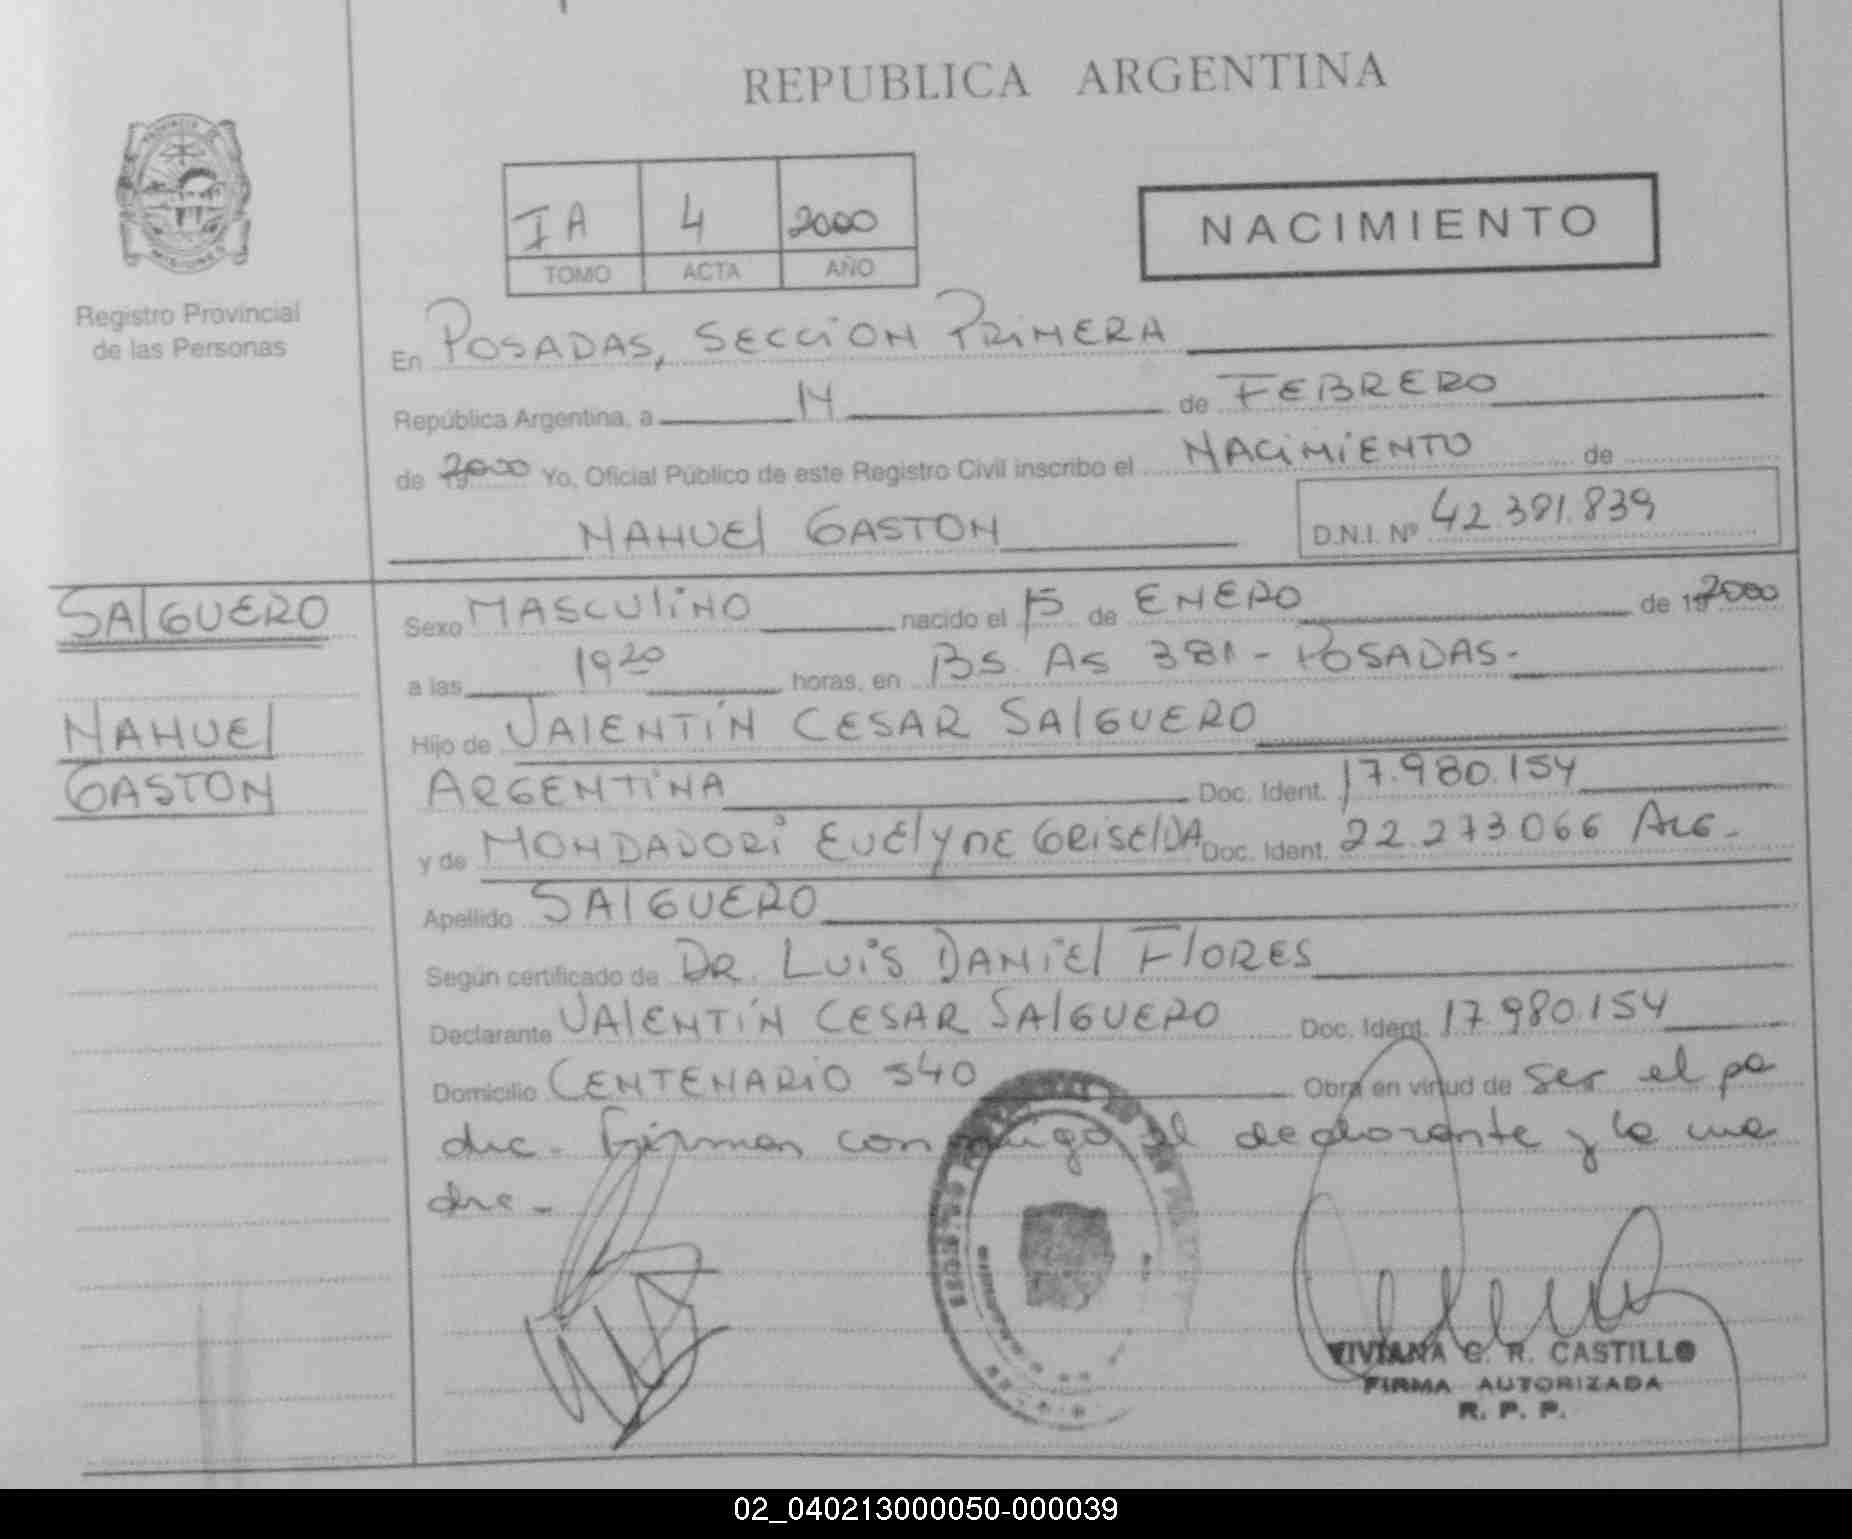 REPUBLICA ARGENTINA
PROVINCIA DE
MISIONES
Registro Provincial
de las Personas
IA 4 2000
TOMO ACTA AÑO
NACIMIENTO
En POSADAS, SECCION PRIMERA
República Argentina, a 14 de FEBRERO
de 2000 Yo, Oficial Público de este Registro Civil inscribo el NACIMIENTO de
NAHUEl GASTON D.N.I. Nº 42.381.839
SALGUERO
NAHUEl
GASTON
Sexo MASCULINO nacido el 15 de ENERO de 2000
a las 19 20 horas, en BS. AS 381 - POSADAS.-
Hijo de VALENTIN CESAR SALGUERO
ARGENTINA Doc. Ident. 17.980.154
y de MONDADORI EVELYNE GRISELDA Doc. Ident. 22.273066 ARG.-
Apellido SALGUERO
Según certificado de DR. LUIS DANIEL FLORES
Declarante VALENTIN CESAR SALGUERO Doc. Ident. 17.980.154
Domicilio CENTENARIO 540 Obra en virtud de ser el pa
dre.- Firman conmigo el declarante y la ma
dre.-
VIVIANA C. R. CASTILLO
FIRMA AUTORIZADA
R. P. P.
02_040213000050-000039